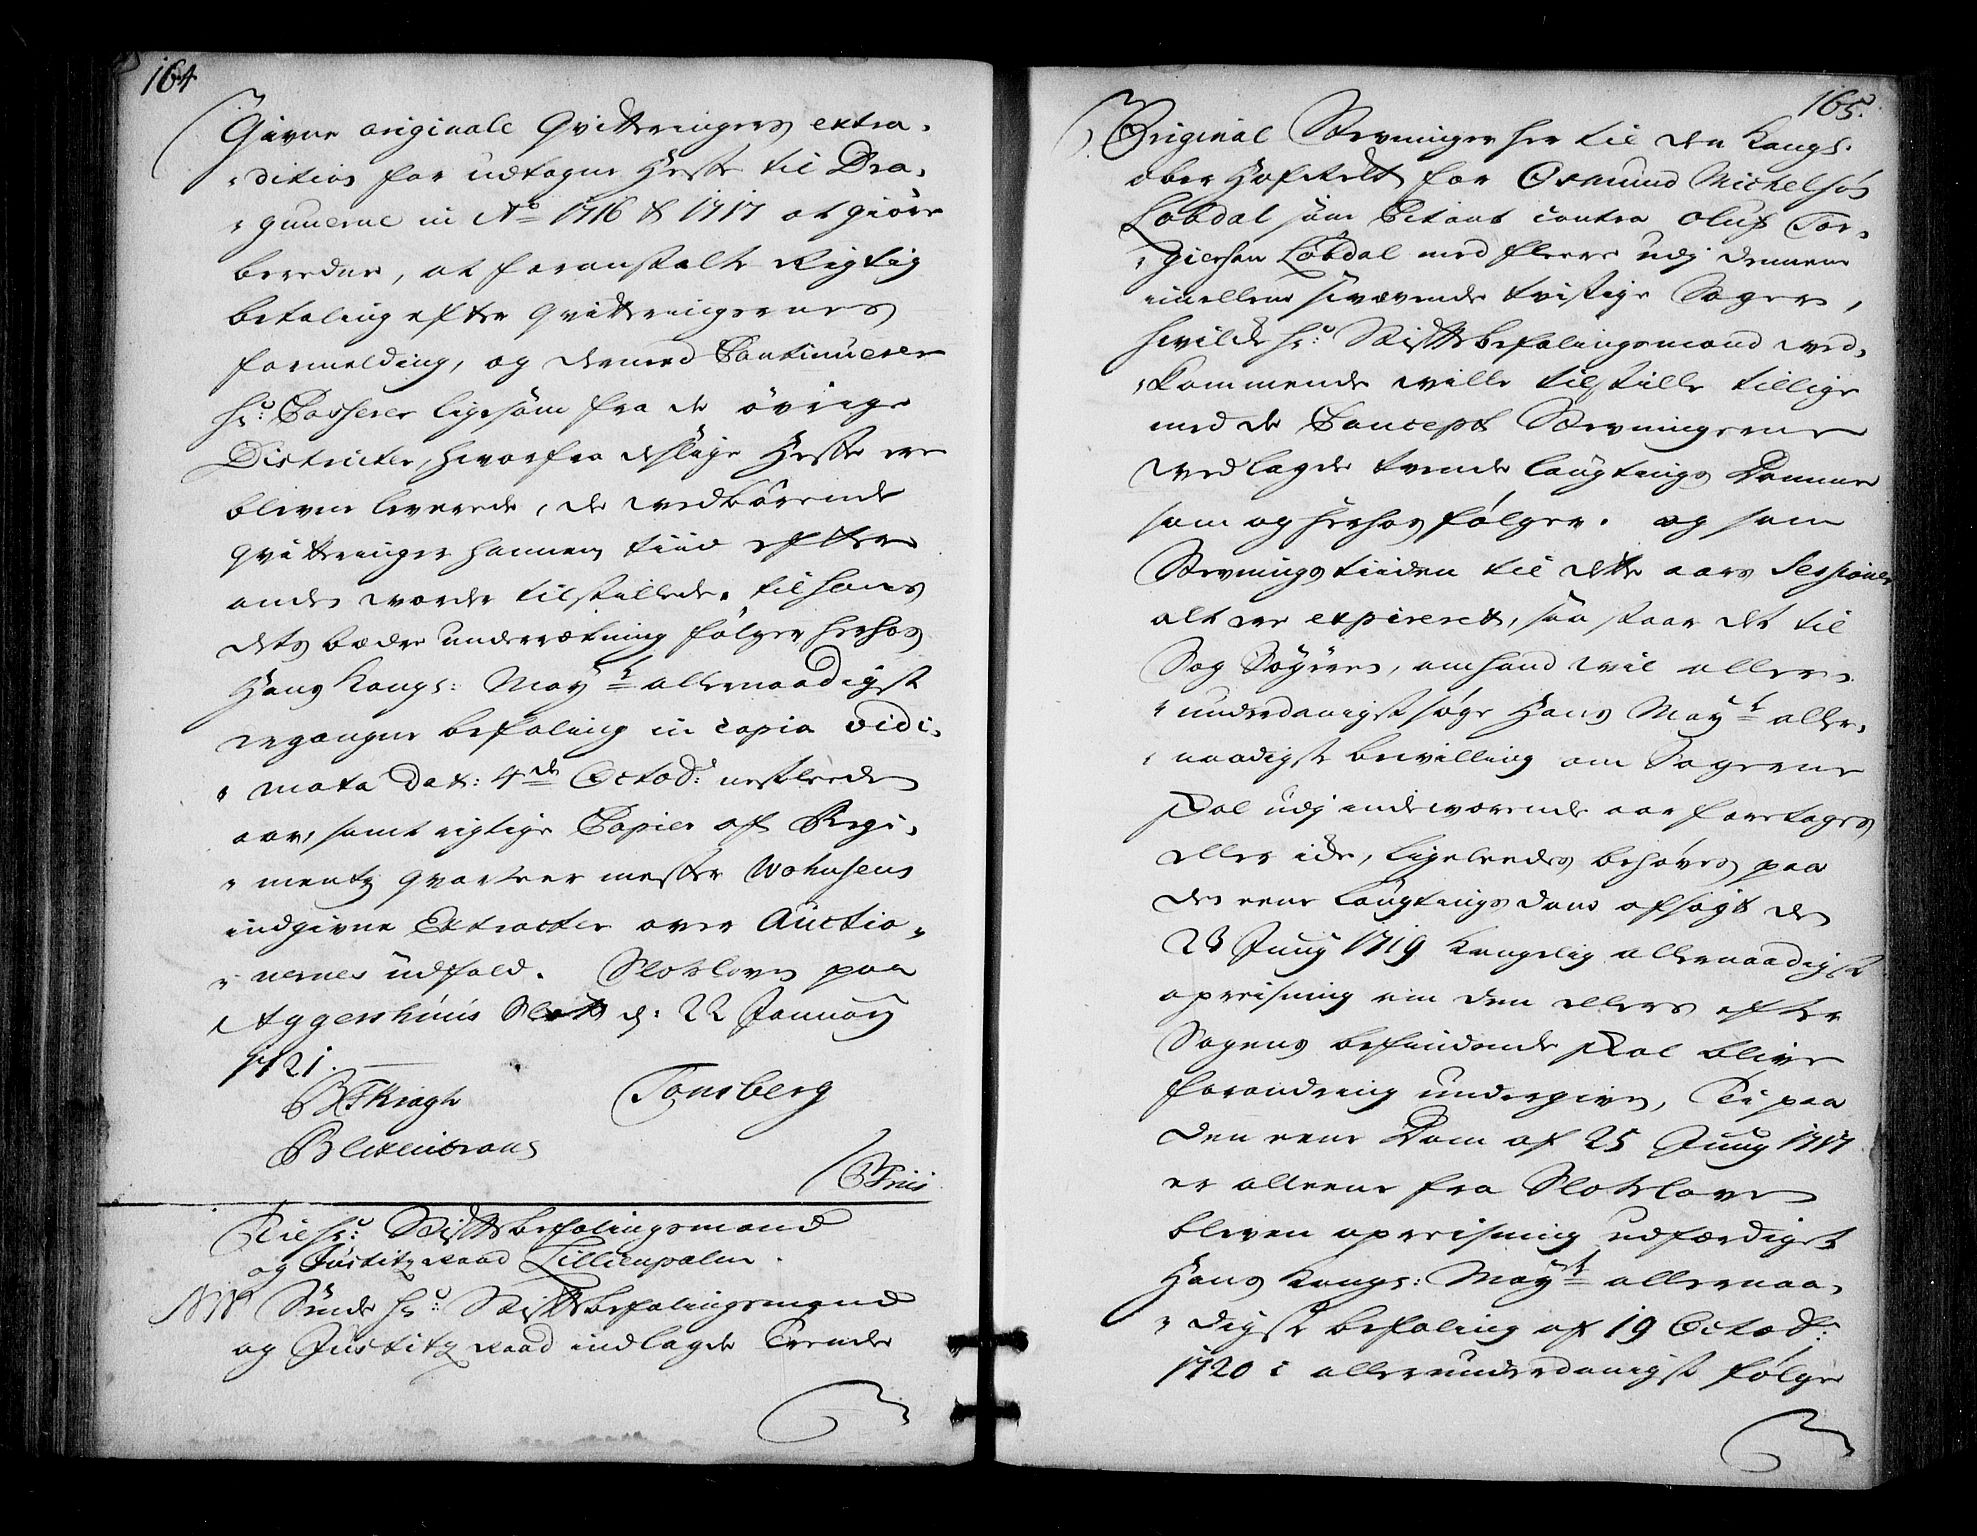 164
Givne originale Qvitteringers extra-
dition for udtagne Heste til Dra-
gunerne in Aº 1716 & 1717 at giöre
bereden, at foranstalte Rigtig
betaling efter qvitteringernes
formelding, og dermed Continuerer
hr: Casserer ligesom fra de övrige
Districter, hvorfra deslige Heste ere
blevne leverede, de vedkommende
qvitteringer hannem tiid efter
anden vorder tilstillede. til hans
dets bædre underrætning fölger herhos
Hans Kongl: Mayts allernaadigst
ergangne befaling in copia vidi-
mata Dat: 4de Octob: nestleeden
aar, samt rigtige Copier af Regi-
mentz qvarteermester Wohnsens
indgivne Extracter over Auctio-
nernes udfald. Slotsloven paa
Aggershuus Slott d: 22 January
1721.
BF Kragh Tonsberg
Blixencrons
CFriis
Til hr: Stiftsbefalingsmand
og Justitz Raad Lillienpalm.
Sende hr: Stiftsbefalingsmand
og Justitz Raad indlagde Trende
165.
Original Stevninger her til den Kongl.
ober Hofrett for Osmund Michelsøn
Löbdal som Citant contra Oluf Tor-
giersen Löbdal med fleere udj dennem
imellem sværende tvistige Sager,
hvilke hr: Stiftsbefalingsmand ved-
kommende ville tilstille tillige
med de Concept Stevningerne
vedlagde tvende laugtings Domme
som og herhos fölger. og som
Stevnings tiiden til dette aars Sessioner
alt er expireret, saa staar det til
Sag Sögeren, om hand vil aller-
underdanigst søge Hans Mayts aller-
naadigste bevilling om Sagerne
skal udj indeværende aar foretages
eller ide, ligeleedes behøves paa
den eene Laugtings dom afsagt den
23 Juny 1719 Kongelig allernaadigst
opreisning om den ellers efter
Sagens befindende skal blive
forandring undergiven, Ti paa
den eene Dom af 25 Juny 1717
er alleene fra Slotsloven
bleven opreisning udfærdiget
Hans Kongl: Mayts allernaa-
digste befaling af 19 Octob:
1720 i allerunderdanigst fölge